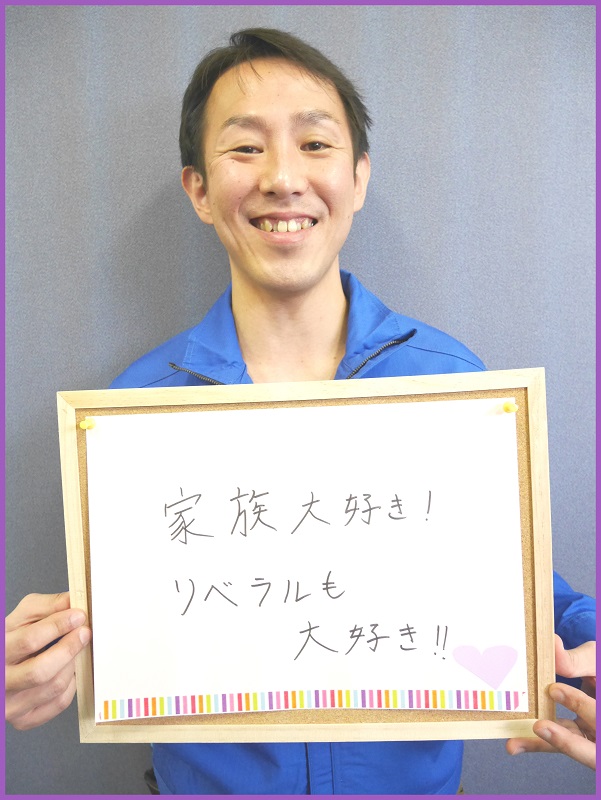 家族大好き!
リベラルも
大好き!!